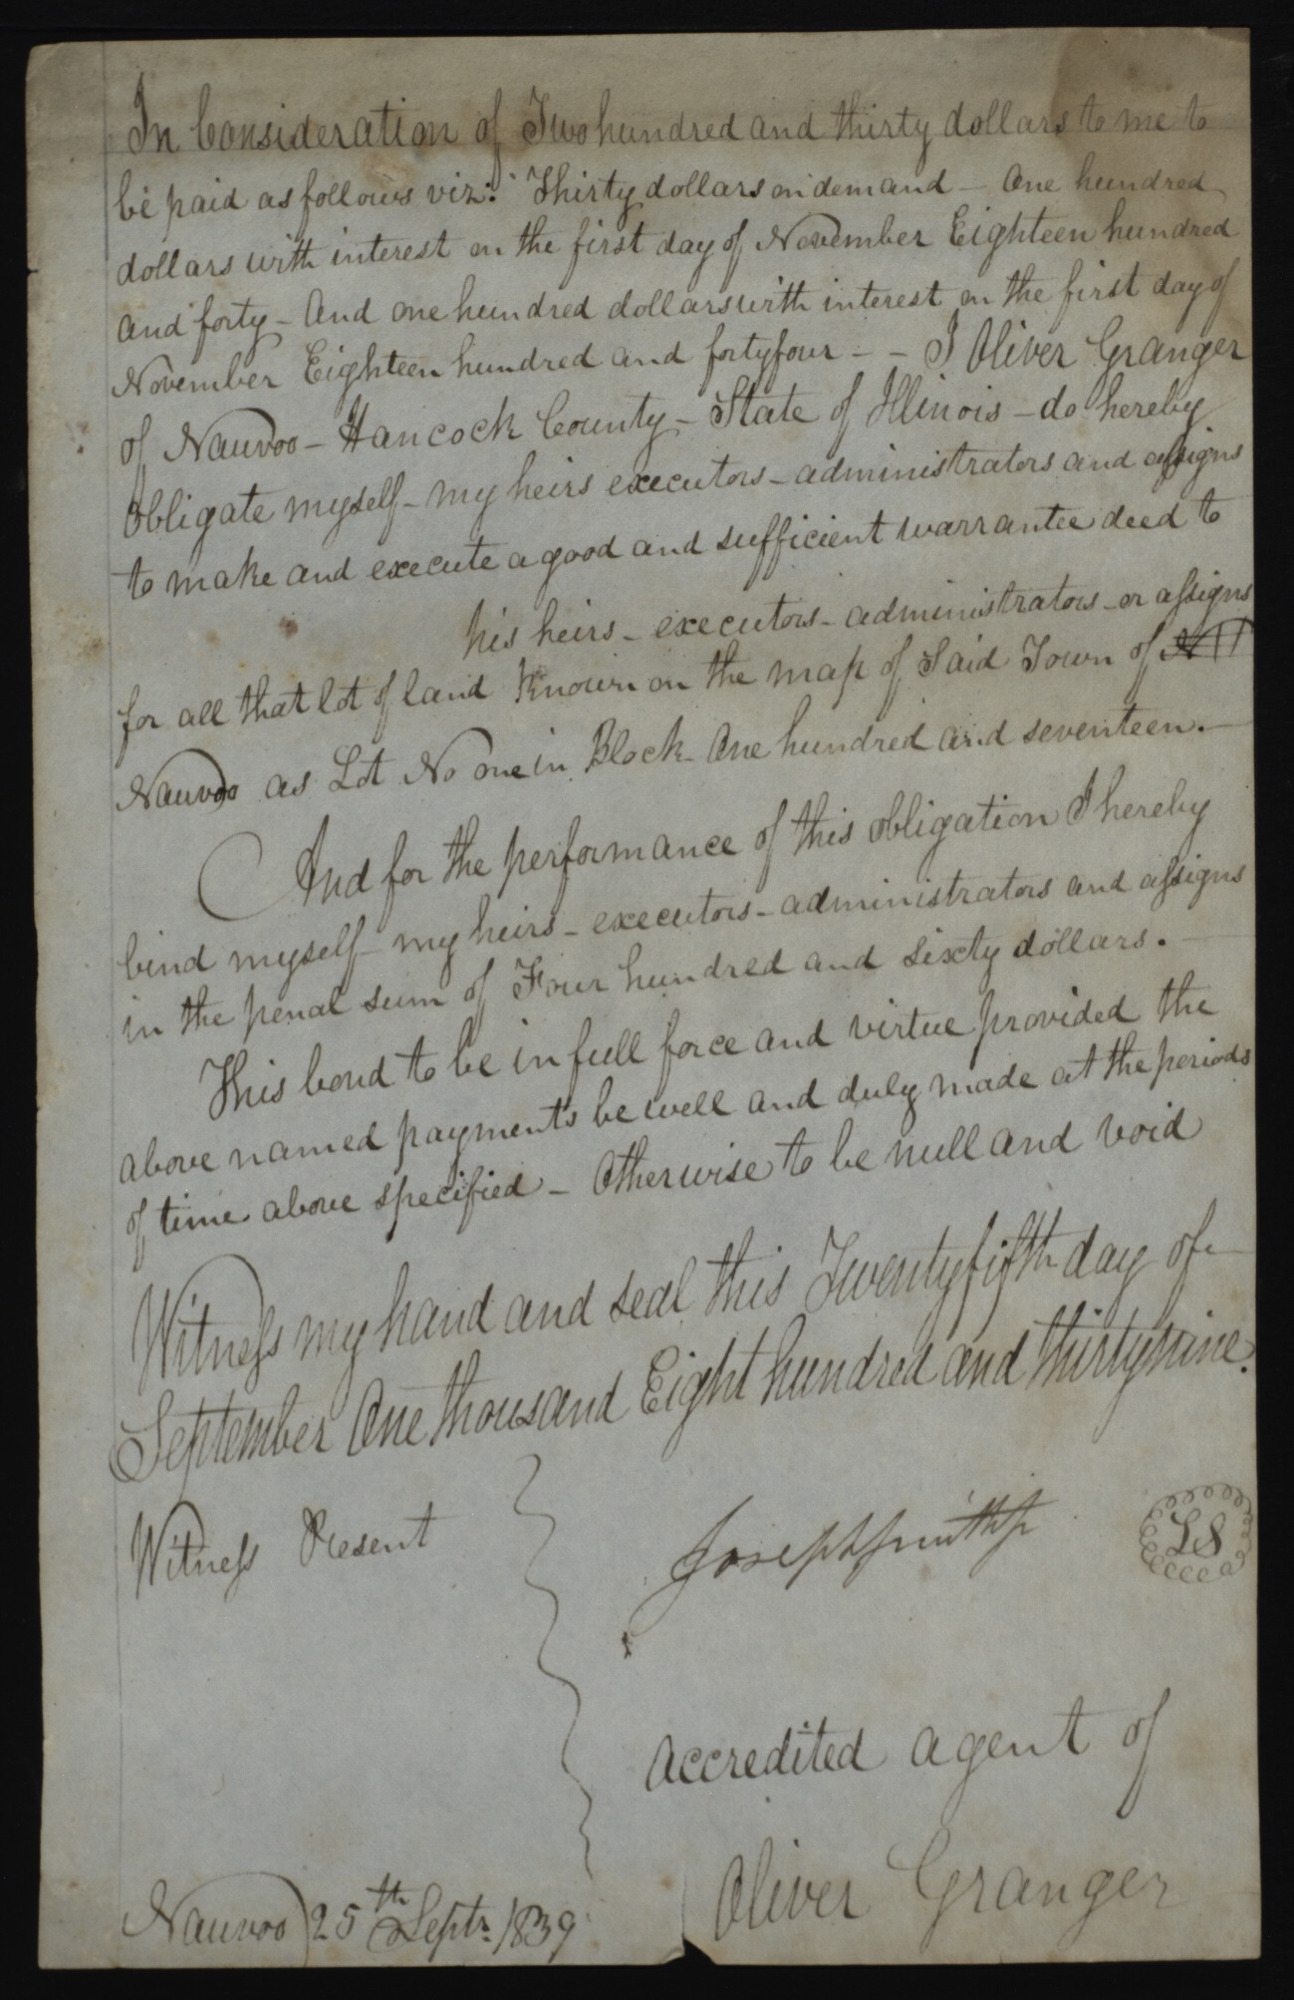 In Consideration of Two hundred and thirty dollars to me to
be paid as follows viz: Thirty dollars on demand – One hundred
dollars with interest on the first day of November Eighteen hundred
and forty – And one hundred dollars with interest on the first day of
November Eighteen hundred and fortyfour – – I Oliver Granger
of Nauvoo – Hancock County – State of Illinois – do hereby
obligate myself – my heirs executors – administrators and assigns
to make and execute a good and sufficient warrantee deed to
his heirs – executors – administrators – or assigns
for all that lot of land Known on the map of Said Town of
Nauvoo as Lot No one in Block One hundred and seventeen. –
And for the performance of this obligation I hereby
bind myself – my heirs – executors – administrators and assigns
in the penal sum of Four hundred and sixty dollars. –
This bond to be in full force and virtue provided the
above named payments be well and duly made at the periods
of time above specified – Otherwise to be null and void
Witness my hand and seal this Twentyfifth day of
September One thousand Eight hundred and thirtynine.
Witness Present
Joseph Smith Jr
LS
Accredited agent of
Oliver Granger
Nauvoo 25th Septr. 1839